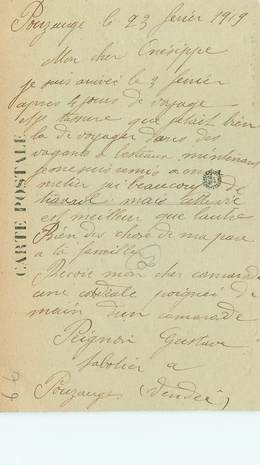 Pouzauge le 23 fevier 1919
Mon cher Onésippe
je suis arrivé le 3 fevrier
apres 4 jours de voyage
je tassure que setait bien
la de voyager dans des
vagonts a besteaux maintenant
je me suis remis a mon
metier jai beaucoup de
travail mais cette vie
est meilleur que lautre
Bien des chose de ma par
a ta famille
Recoie mon cher camarade
une cordiale poignée de
main d'un camarade
Peignon Gustave
sabotier a
Pouzauges (Vendée)
CARTE POSTALE